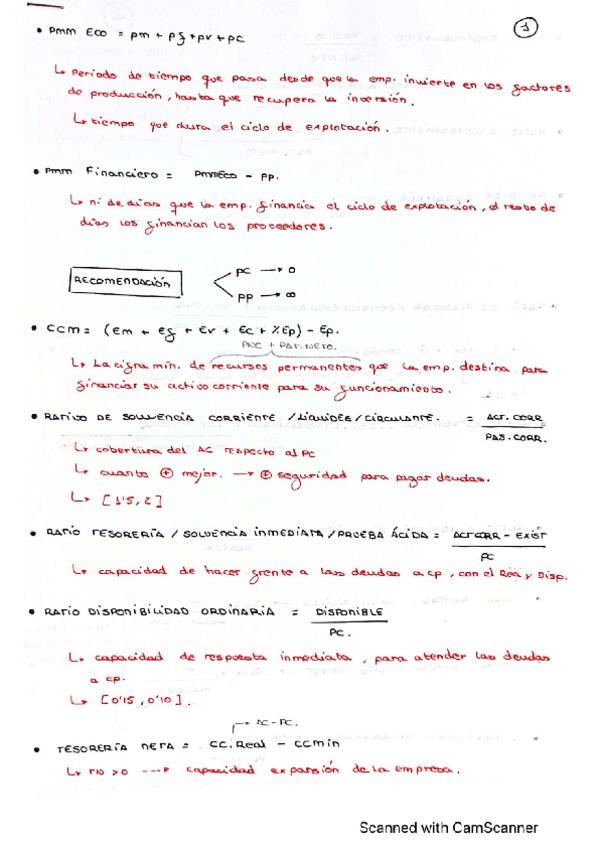 1
• Pmm Eco = pm + pf + pv + pc
↳ Periodo de tiempo que pasa desde que la emp. invierte en los factores
de producción, hasta que recupera la inversión.
↳ tiempo que dura el ciclo de explotación.
• Pmm Financiero = PmmEco - pp.
↳ nº de días que la emp. financia el ciclo de explotación, el resto de
días los financian los proveedores.
RECOMENDACIÓN
PC → 0
PP → ∞
• CCM = (Em + Ef + Ev + Ec + %Ep) - Ep.
PNC + PAT. NETO.
↳ La cifra mín. de recursos permanentes que la emp. destina para
financiar su activo corriente para su funcionamiento.
• RATIO DE SOLVENCIA CORRIENTE / LIQUIDEZ / CIRCULANTE. = ACT. CORR
PAS. CORR.
↳ cobertura del AC respecto al PC
↳ cuanto ⊕ mejor. → ⊕ seguridad para pagar deudas.
↳ [1'5, 2]
• RATIO TESORERÍA / SOLVENCIA INMEDIATA / PRUEBA ÁCIDA = ACTCORR - EXIST
PC
↳ capacidad de hacer frente a las deudas a cp, con el Rea y Disp.
• RATIO DISPONIBILIDAD ORDINARIA = DISPONIBLE
PC.
↳ capacidad de respuesta inmediata, para atender las deudas
a cp.
↳ [0'15, 0'10].
→ AC - PC.
• TESORERÍA NETA = CC. Real - CCmin
↳ TN > 0 ---→ capacidad expansión de la empresa.
Scanned with CamScanner